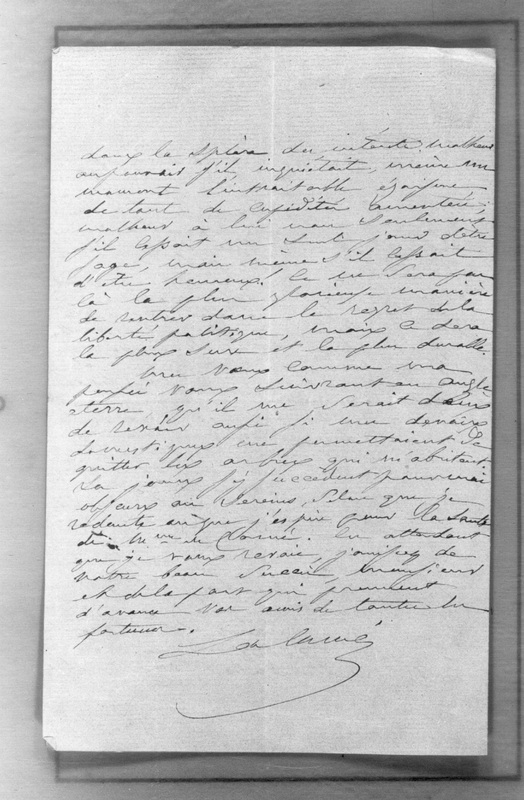 dans la sphère des intérêts. malheur
au pouvoir s'il inquiétait, même un
moment l'intraitable égoïsme
de tant de cupidités ameutées
malheur à lui non seulement
s'il cessait un seul jour d'être
sage, mais même s'il cessait
d'être heureux! Ce ne sera pas
là la plus glorieuse manière
de rentrer dans le regret de la
liberté politique, mais ce sera
la plus sure et la plus durable.
mes vœux comme ma
pensée vous suivront en angle
terre, qu'il me serait doux
de revoir aussi si mes devoirs
domestiques me permettaient de
quitter les arbres qui m'abritent.
Les jours s'y succèdent pour moi
obscurs ou sereins, selon que je
redoute ou que j'espère pour la santé
de Mme de Carné. En attendant
que je vous revoie, jouissez de
votre beau succès, monsieur
et de la part qui prennent
d'avance vos amis de toutes les
fortunes.